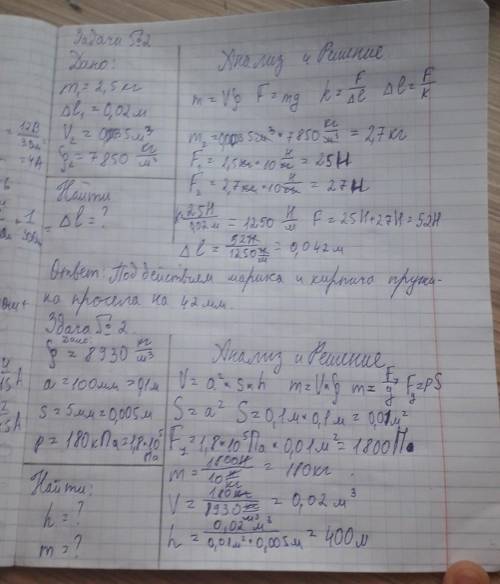 Задача №2
Дано:
m₁ = 2,5 кг
Δl₁ = 0,02 м
V₂ = 0,0035 м³
ρ₂ = 7850 кг/м³
Найти
Δl = ?
Анализ и Решение
m = Vρ F = mg k = F/Δl Δl = F/k
7850 кг/м³ = 2,7 кг
F₁ = 2,5 кг · 10 Н/кг = 25 Н
F₂ = 2,7 кг · 10 Н/кг = 27 Н
25 Н/0,02 м = 1250 Н/м F = 25 Н + 27 Н = 52 Н
Δl = 52 Н/1250 Н/м = 0,042 м
Ответ: Под действием шарика и кирпича пружи-
на просела на 42 мм.
Здача №2.
Дано:
ρ = 8930 кг/м³
a = 100 мм = 0,1 м
s = 5 мм = 0,005 м
p = 180 кПа = 1,8·10⁵ Па
Найти:
h = ?
m = ?
Анализ и Решение
V = a * s * h m = V*ρ m = F/g F = pS
S = a² S = 0,1 м * 0,1 м = 0,01 м²
F = 1,8*10⁵ Па * 0,01 м² = 1800 Па
m = 1800 Н/10 Н/кг = 180 кг
V = 180 кг/8930 кг/м³ = 0,02 м³
h = 0,02 м³/0,01 м² * 0,005 м = 400 м